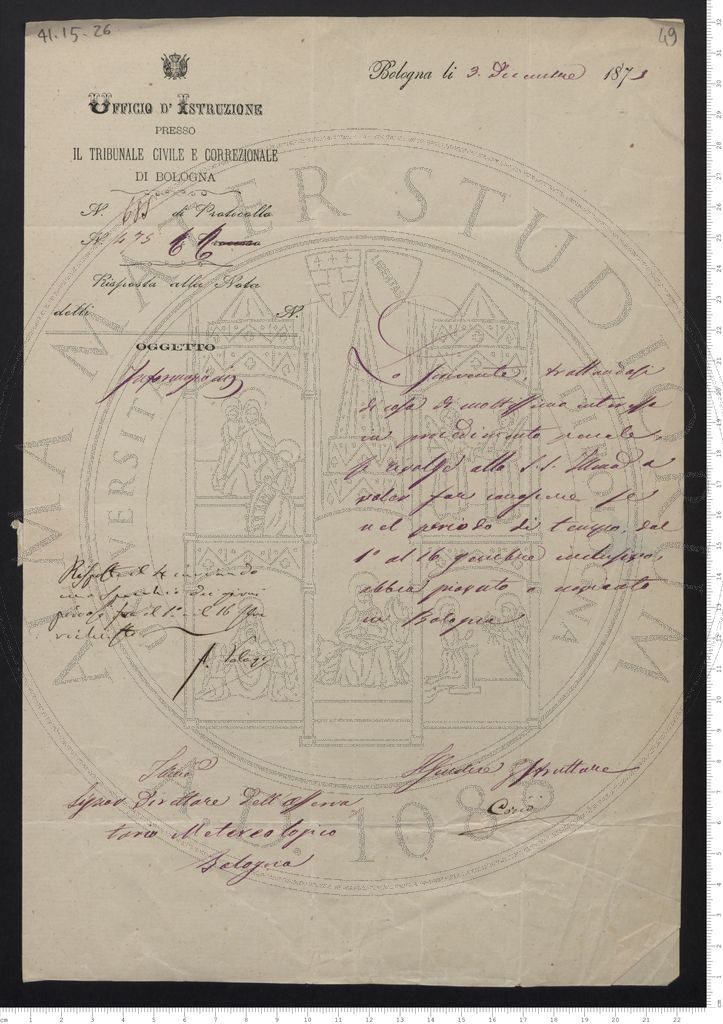 41.15-26
49
Bologna li 3. Dicembre 1873
UFFICIO D' ISTRUZIONE
PRESSO
IL TRIBUNALE CIVILE E CORREZIONALE
DI BOLOGNA
N. 685 di Protocollo
N. 475
Risposta alla Nota
delli N.
OGGETTO
Informazioni
Lo scrivente, trattandosi
di cosa di moltissimo interesse
in procedimento penale,
si rivolge alla S.S. Illma a
voler far conoscere se
nel periodo di tempo, dal
1° al 16 inclusivo,
abbia piovuto o nevicato
in Bologna
Risposto il 4 inviando
uno specchio dei giorni
piovosi fra il 1° ed il 16
richiesto
Il Giudice Istruttore
Illmo
Signor Direttore dell'Osserva
torio Metereologico
Bologna
ALMA MATER STUDIORUM
A.D. 1088